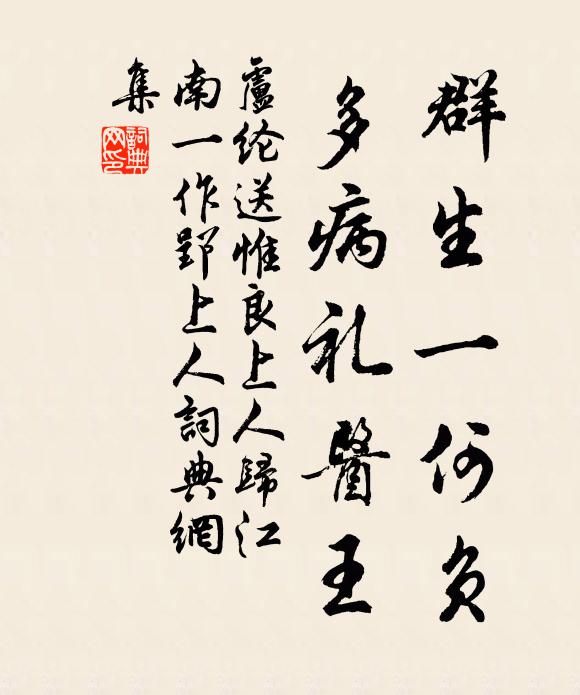 群生一何负
多病礼醫王
盧纶送惟良上人歸江
南一作郢上人詞典網
集
詞典
网印